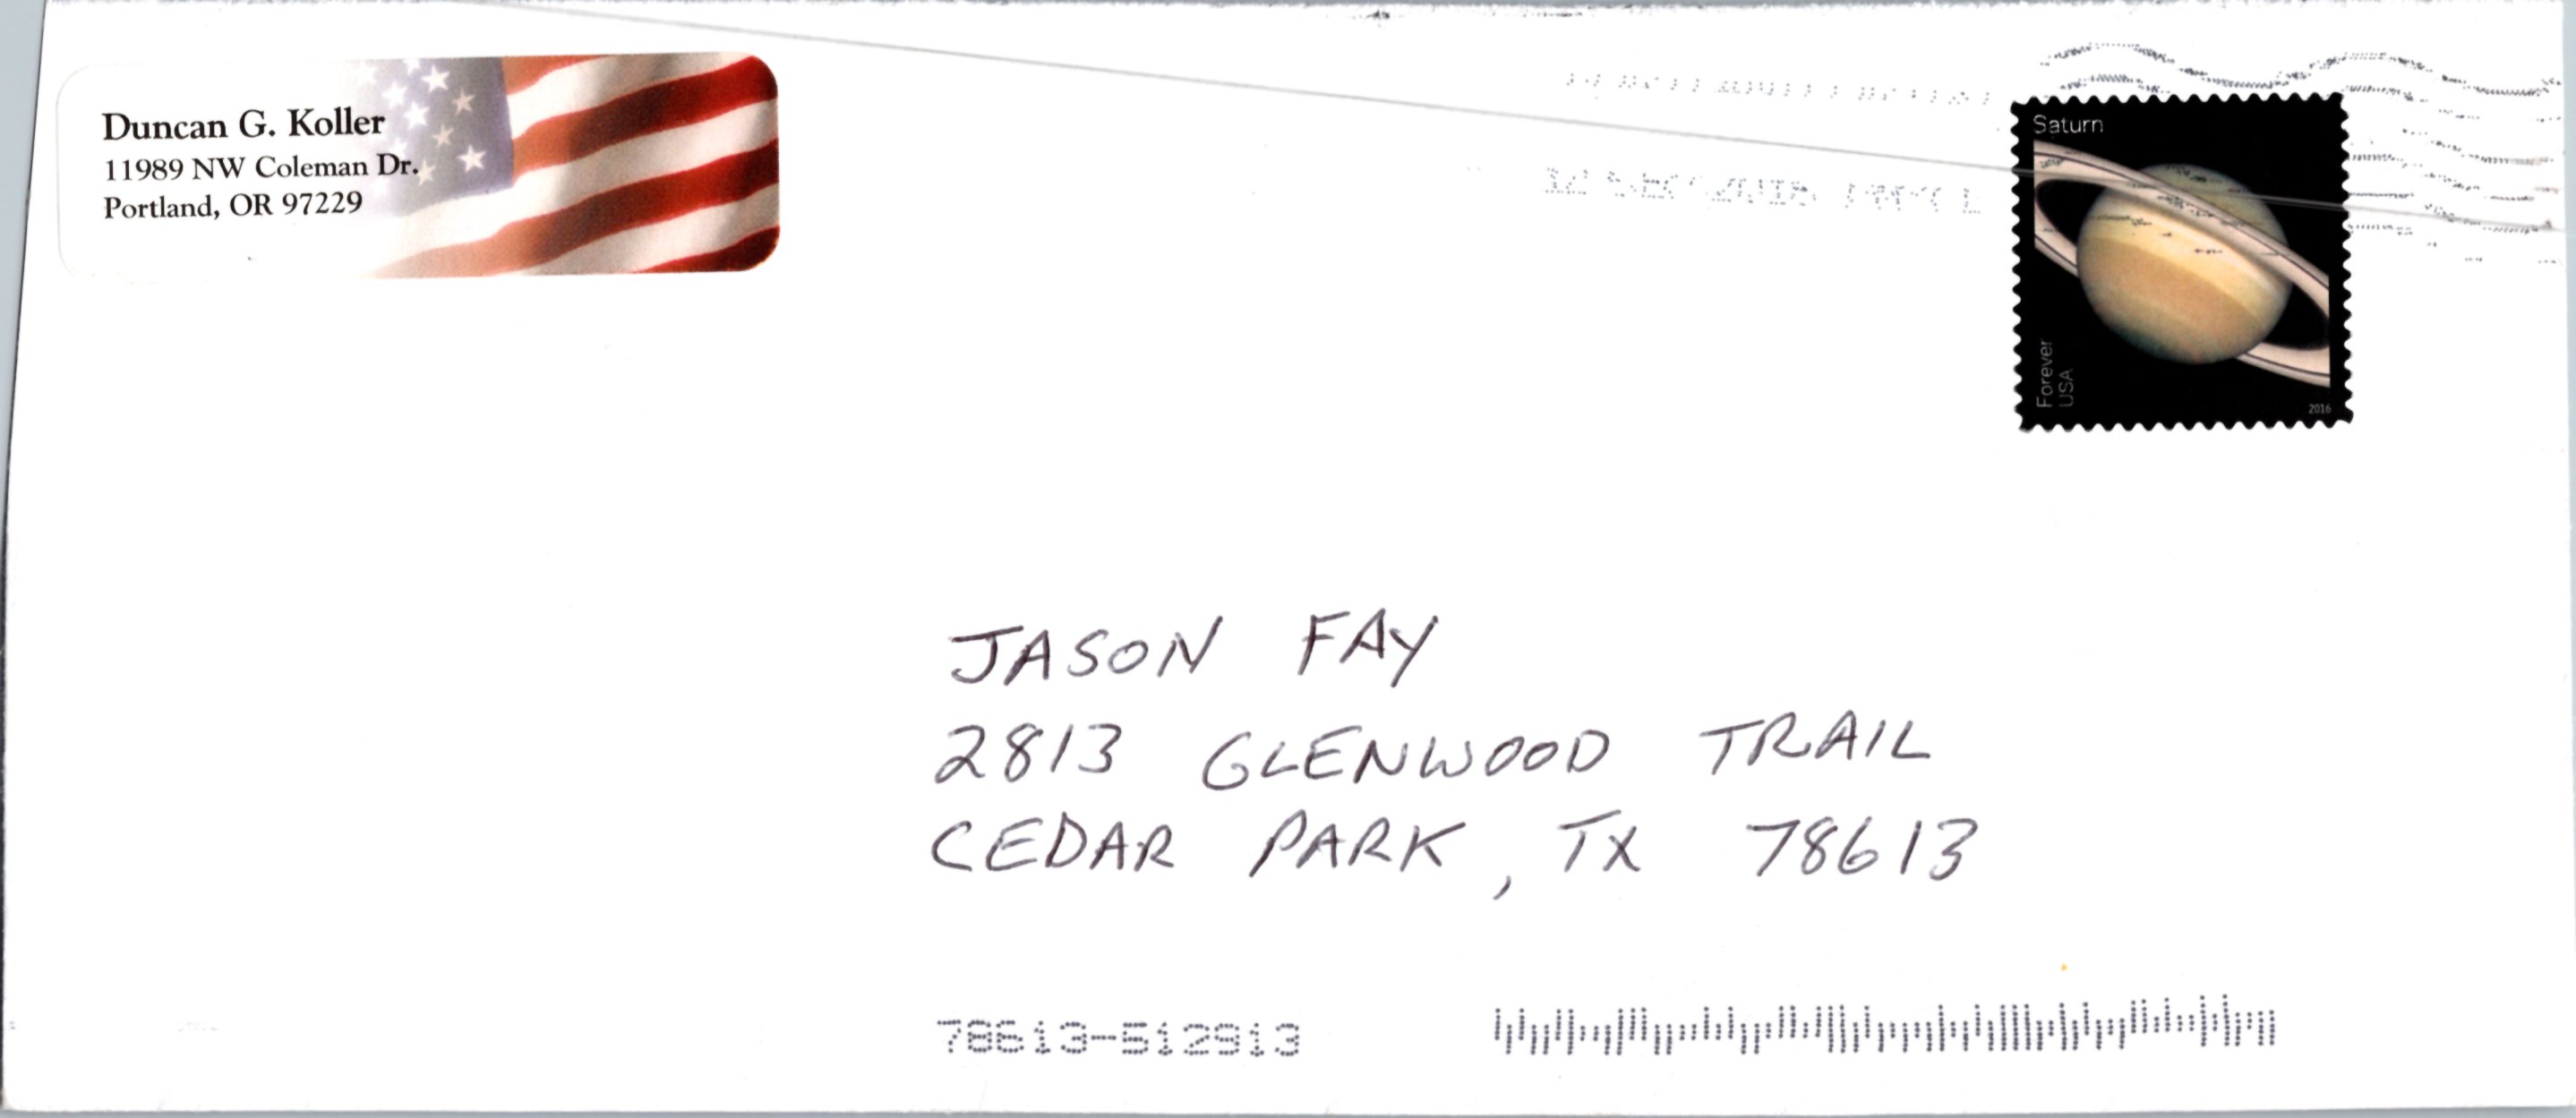 Duncan G. Koller
11989 NW Coleman Dr.
Portland, OR 97229
Saturn
Forever
USA
2016
JASON FAY
2813 GLENWOOD TRAIL
CEDAR PARK, TX 78613
78613-512813